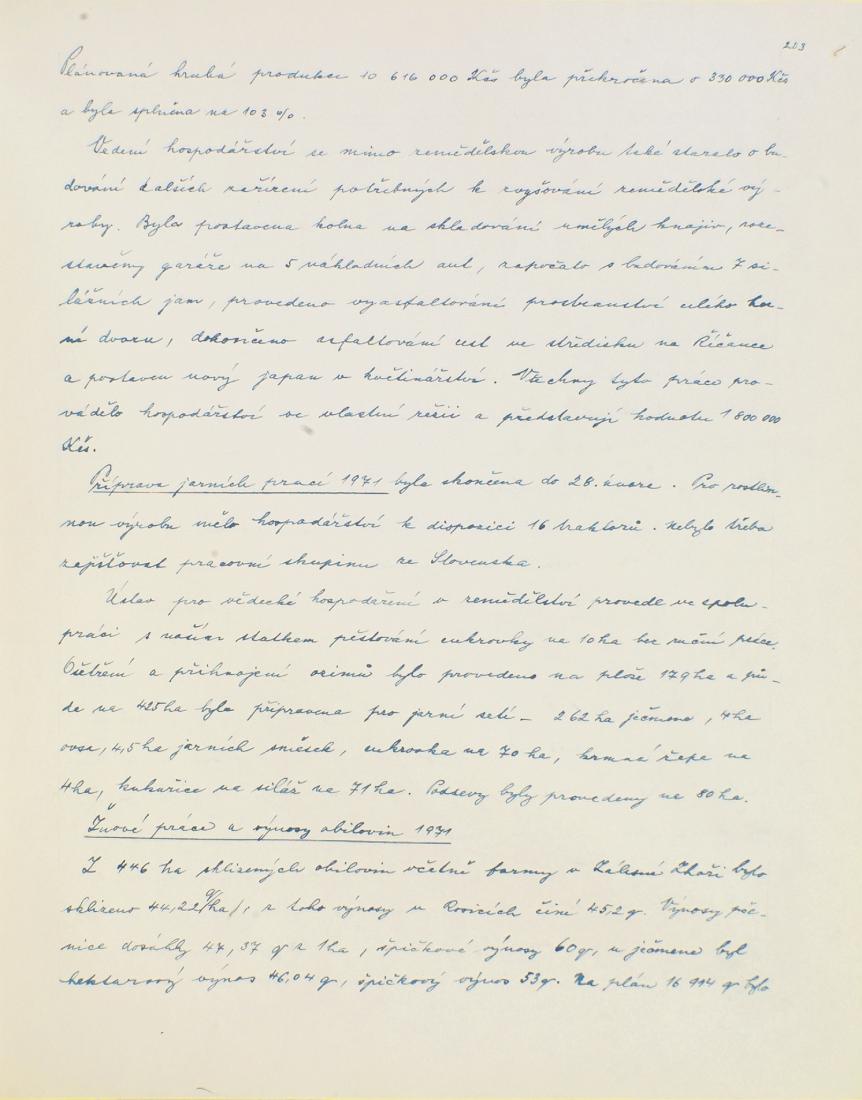 203
Plánovaná hrubá produkce 10 616 000 Kčs byla překročena o 330 000 Kčs
a byla splněna na 103 %.
Vedení hospodářství se mimo zemědělskou výrobu také staralo o bu-
dování dalších zařízení potřebných k rozšování zemědělské vý-
roby. Byla postavena kolna na skladování umělých hnojiv, roze-
stavěny garáže na 5 nákladních aut, započato s budováním 7 si-
lážních jam, provedeno vyasfaltování prostranství celého hor-
ní dvoru, dokončeno asfaltování cest ve středisku na Říčance
a postaven nový japan v květinářství. Všechny tyto práce pro-
vádělo hospodářství ve vlastní režii a představují hodnotu 1 800 000
Kčs.
Příprava jarních prací 1971 byla skončena do 28. února. Pro rostlin-
nou výrobu mělo hospodářství k disposici 16 traktorů. Nebylo třeba
zajišťovat pracovní skupinu ze Slovenska.
Ústav pro vědecké hospodaření v zemědělství provede ve spolu-
práci s naším statkem pěstování cukrovky na 10 ha bez ruční práce.
Ošetření a přihnojení ozimů bylo provedeno na ploše 179 ha a pů-
da na 425 ha byla připravena pro jarní setí - 262 ha ječmene, 4 ha
ovsa, 4,5 ha jarních směsek, cukrovka na 70 ha, krmná řepa na
4 ha, kukuřice na siláž na 71 ha. Podsevy byly provedeny na 80 ha.
Žňové práce a výnosy obilovin 1971
Z 446 ha sklizených obilovin včetně farmy v Zálesné Zhoři bylo
sklizeno 44,22 q/ha/, z toho výnosy v Rosicích činí 45,2 q. Výnosy pše-
nice dosáhly 47,37 q z 1 ha, špičkové výnosy 60 q, u ječmene byl
hektarový výnos 46,04 q, špičkový výnos 53 q. Na plán 16 914 q bylo